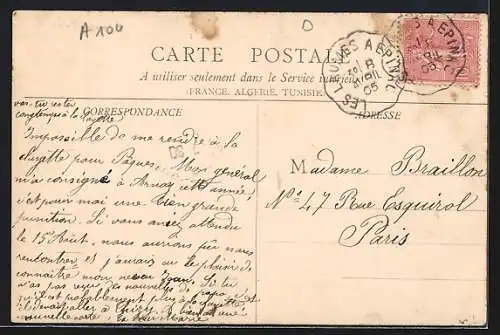 A 100
CARTE POSTALE
A utiliser seulement dans le Service intérieur
(FRANCE, ALGERIE, TUNISIE)
LES LAUMES A EPINAL
AVRIL
05
CORRESPONDANCE
ADRESSE
vas-tu rester
longtemps à la
Impossible de me rendre à la
pour Pâques. Mon général
m'a consigné à Arnay cette année,
c'est pour moi une bien grande
punition. Si vous aviez attendu
le 15 Août, nous aurions pu nous
rencontrer et j'aurais eu le plaisir de
connaître mon neveu Jean. Si tu
n'as pas reçu de nouvelles
qu'il est probablement plus à
nouvelle carte
Madame Braillon
No 47 Rue Esquirol
Paris